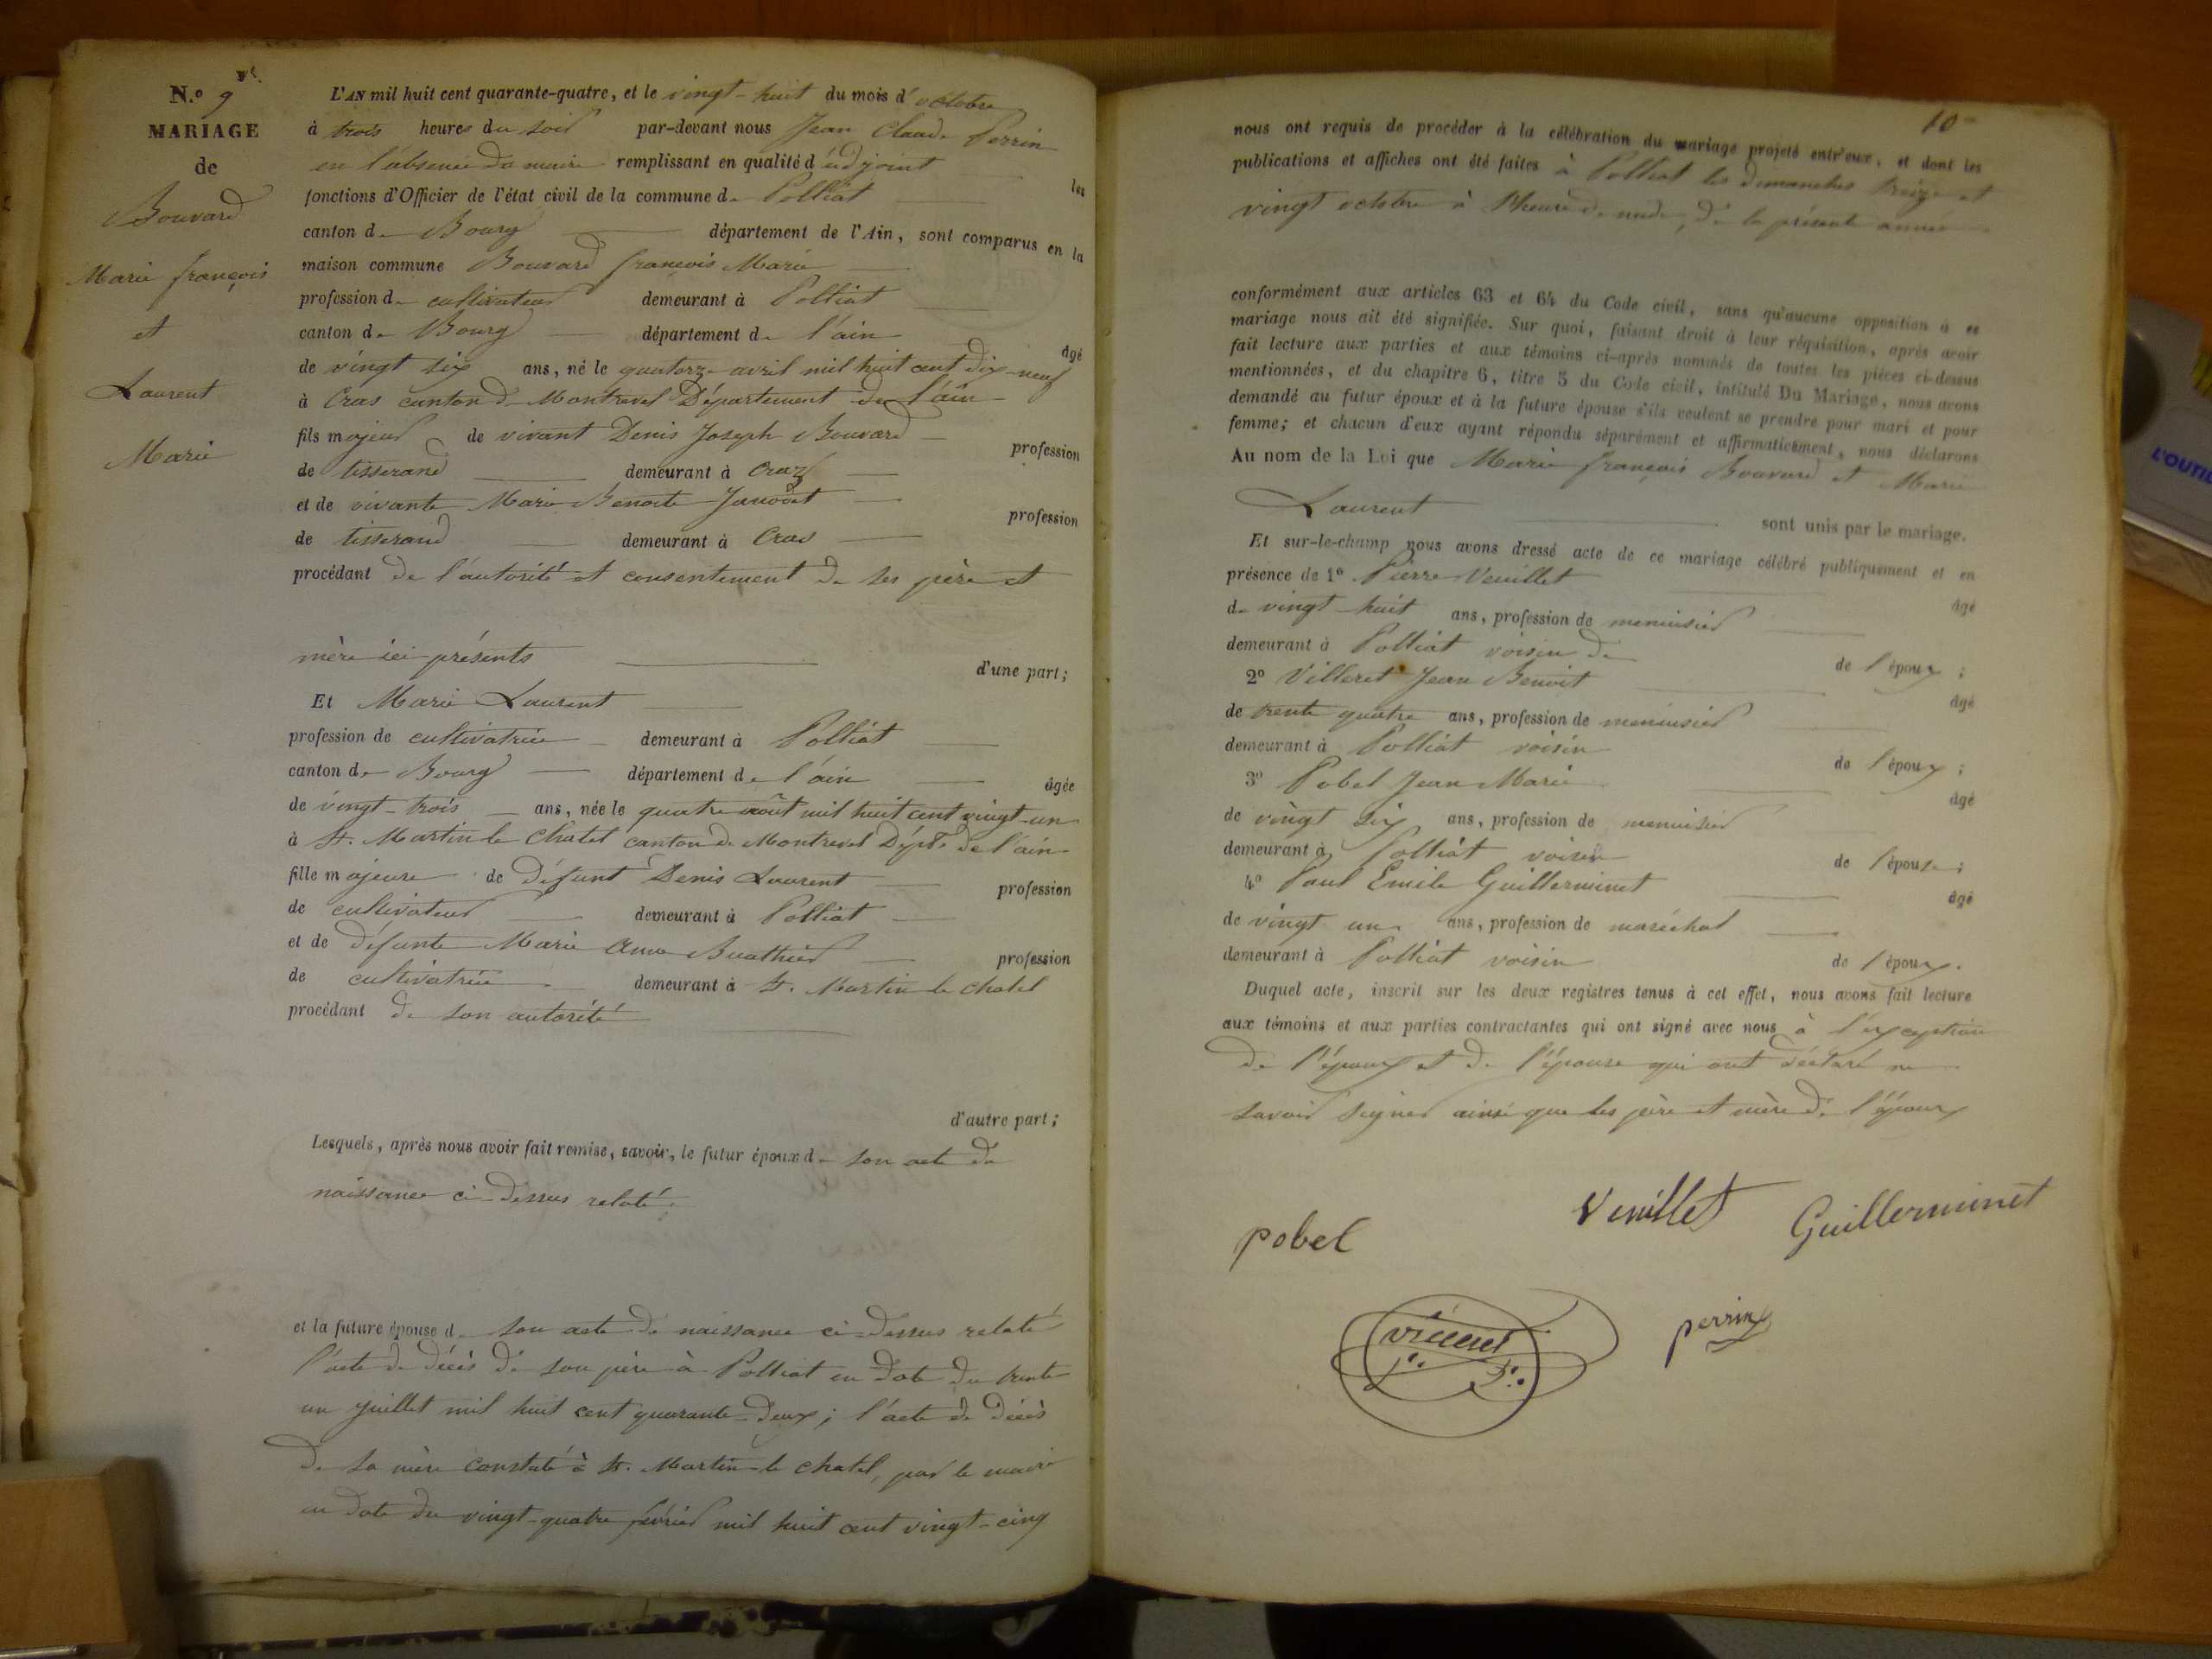 N.º 9
MARIAGE
de
Bouvard
Marie françois
et
Laurent
Marie
L'AN mil huit cent quarante-quatre, et le vingt-huit du mois d'octobre
à trois heures du soir par-devant nous Jean Claude Perrin
en l'absence du maire remplissant en qualité d'adjoint les
fonctions d'Officier de l'état civil de la commune de Polliat
canton de Bourg département de l'Ain, sont comparus en la
maison commune Bouvard françois Marie
profession de cultivateur demeurant à Polliat
canton de Bourg département de l'ain âgé
de vingt six ans, né le quatorze avril mil huit cent dix-neuf
à Cras canton de Montrevel Département de l'ain
fils majeur de vivant Denis Joseph Bouvard profession
de tisserand demeurant à Cras
et de vivante Marie Benoite profession
de tisserand demeurant à Cras
procédant de l'autorité et consentement de ses père et
mère ici présents d'une part;
Et Marie Laurent
profession de cultivatrice demeurant à Polliat
canton de Bourg département de l'ain âgée
de vingt-trois ans, née le quatre août mil huit cent vingt-un
à St. Martin le Chatel canton de Montrevel Dépt. de l'ain
fille majeure de défunt Denis Laurent profession
de cultivateur demeurant à Polliat
et de défunte Marie Anne Buathier profession
de cultivatrice demeurant à St. Martin le chatel
procédant de son autorité
d'autre part;
Lesquels, après nous avoir fait remise, savoir, le futur époux de son acte de
naissance ci-dessus relaté.
et la future épouse de son acte de naissance ci-dessus relaté
l'acte de décès de son père à Polliat en date du trente
un juillet mil huit cent quarante-deux; l'acte de décès
de sa mère constaté à St. Martin-le chatel, par le maire
en date du vingt-quatre février mil huit cent vingt-cinq
10
nous ont requis de procéder à la célébration du mariage projeté entr'eux, et dont les
publications et affiches ont été faites à Polliat les dimanches treize et
vingt octobre à l'heure de midi, de la présente année
conformément aux articles 63 et 64 du Code civil, sans qu'aucune opposition à ce
mariage nous ait été signifiée. Sur quoi, faisant droit à leur réquisition, après avoir
fait lecture aux parties et aux témoins ci-après nommés de toutes les pièces ci-dessus
mentionnées, et du chapitre 6, titre 5 du Code civil, intitulé Du Mariage, nous avons
demandé au futur époux et à la future épouse s'ils veulent se prendre pour mari et pour
femme; et chacun d'eux ayant répondu séparément et affirmativement, nous déclarons
Au nom de la Loi que Marie françois Bouvard et Marie
Laurent sont unis par le mariage.
Et sur-le-champ nous avons dressé acte de ce mariage célébré publiquement et en
présence de 1º Pierre Veuillet âgé
de vingt-huit ans, profession de menuisier
demeurant à Polliat voisin de de l'époux;
2º Villeret Jean Benoit âgé
de trente quatre ans, profession de menuisier
demeurant à Polliat voisin de l'époux;
3º Pobel Jean Marie âgé
de vingt six ans, profession de menuisier
demeurant à Polliat voisin de l'épouse;
4º Paul Emile Guillerminet âgé
de vingt un ans, profession de maréchal
demeurant à Polliat voisin de l'époux.
Duquel acte, inscrit sur les deux registres tenus à cet effet, nous avons fait lecture
aux témoins et aux parties contractantes qui ont signé avec nous à l'exception
de l'époux et de l'épouse qui ont déclaré ne
savoir signer ainsi que les père et mère de l'époux
pobel
Veuillet
Guillerminet
perrin
L'OUTIL